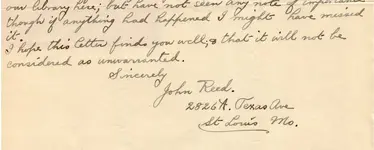 our library here; but have not seen any note of importance
though if anything had happened I might have missed
it.
I hope this letter finds you well; & that it will not be
considered as unwarranted.
Sincerely
John Reed.
2826A. Texas Ave
St Louis Mo.